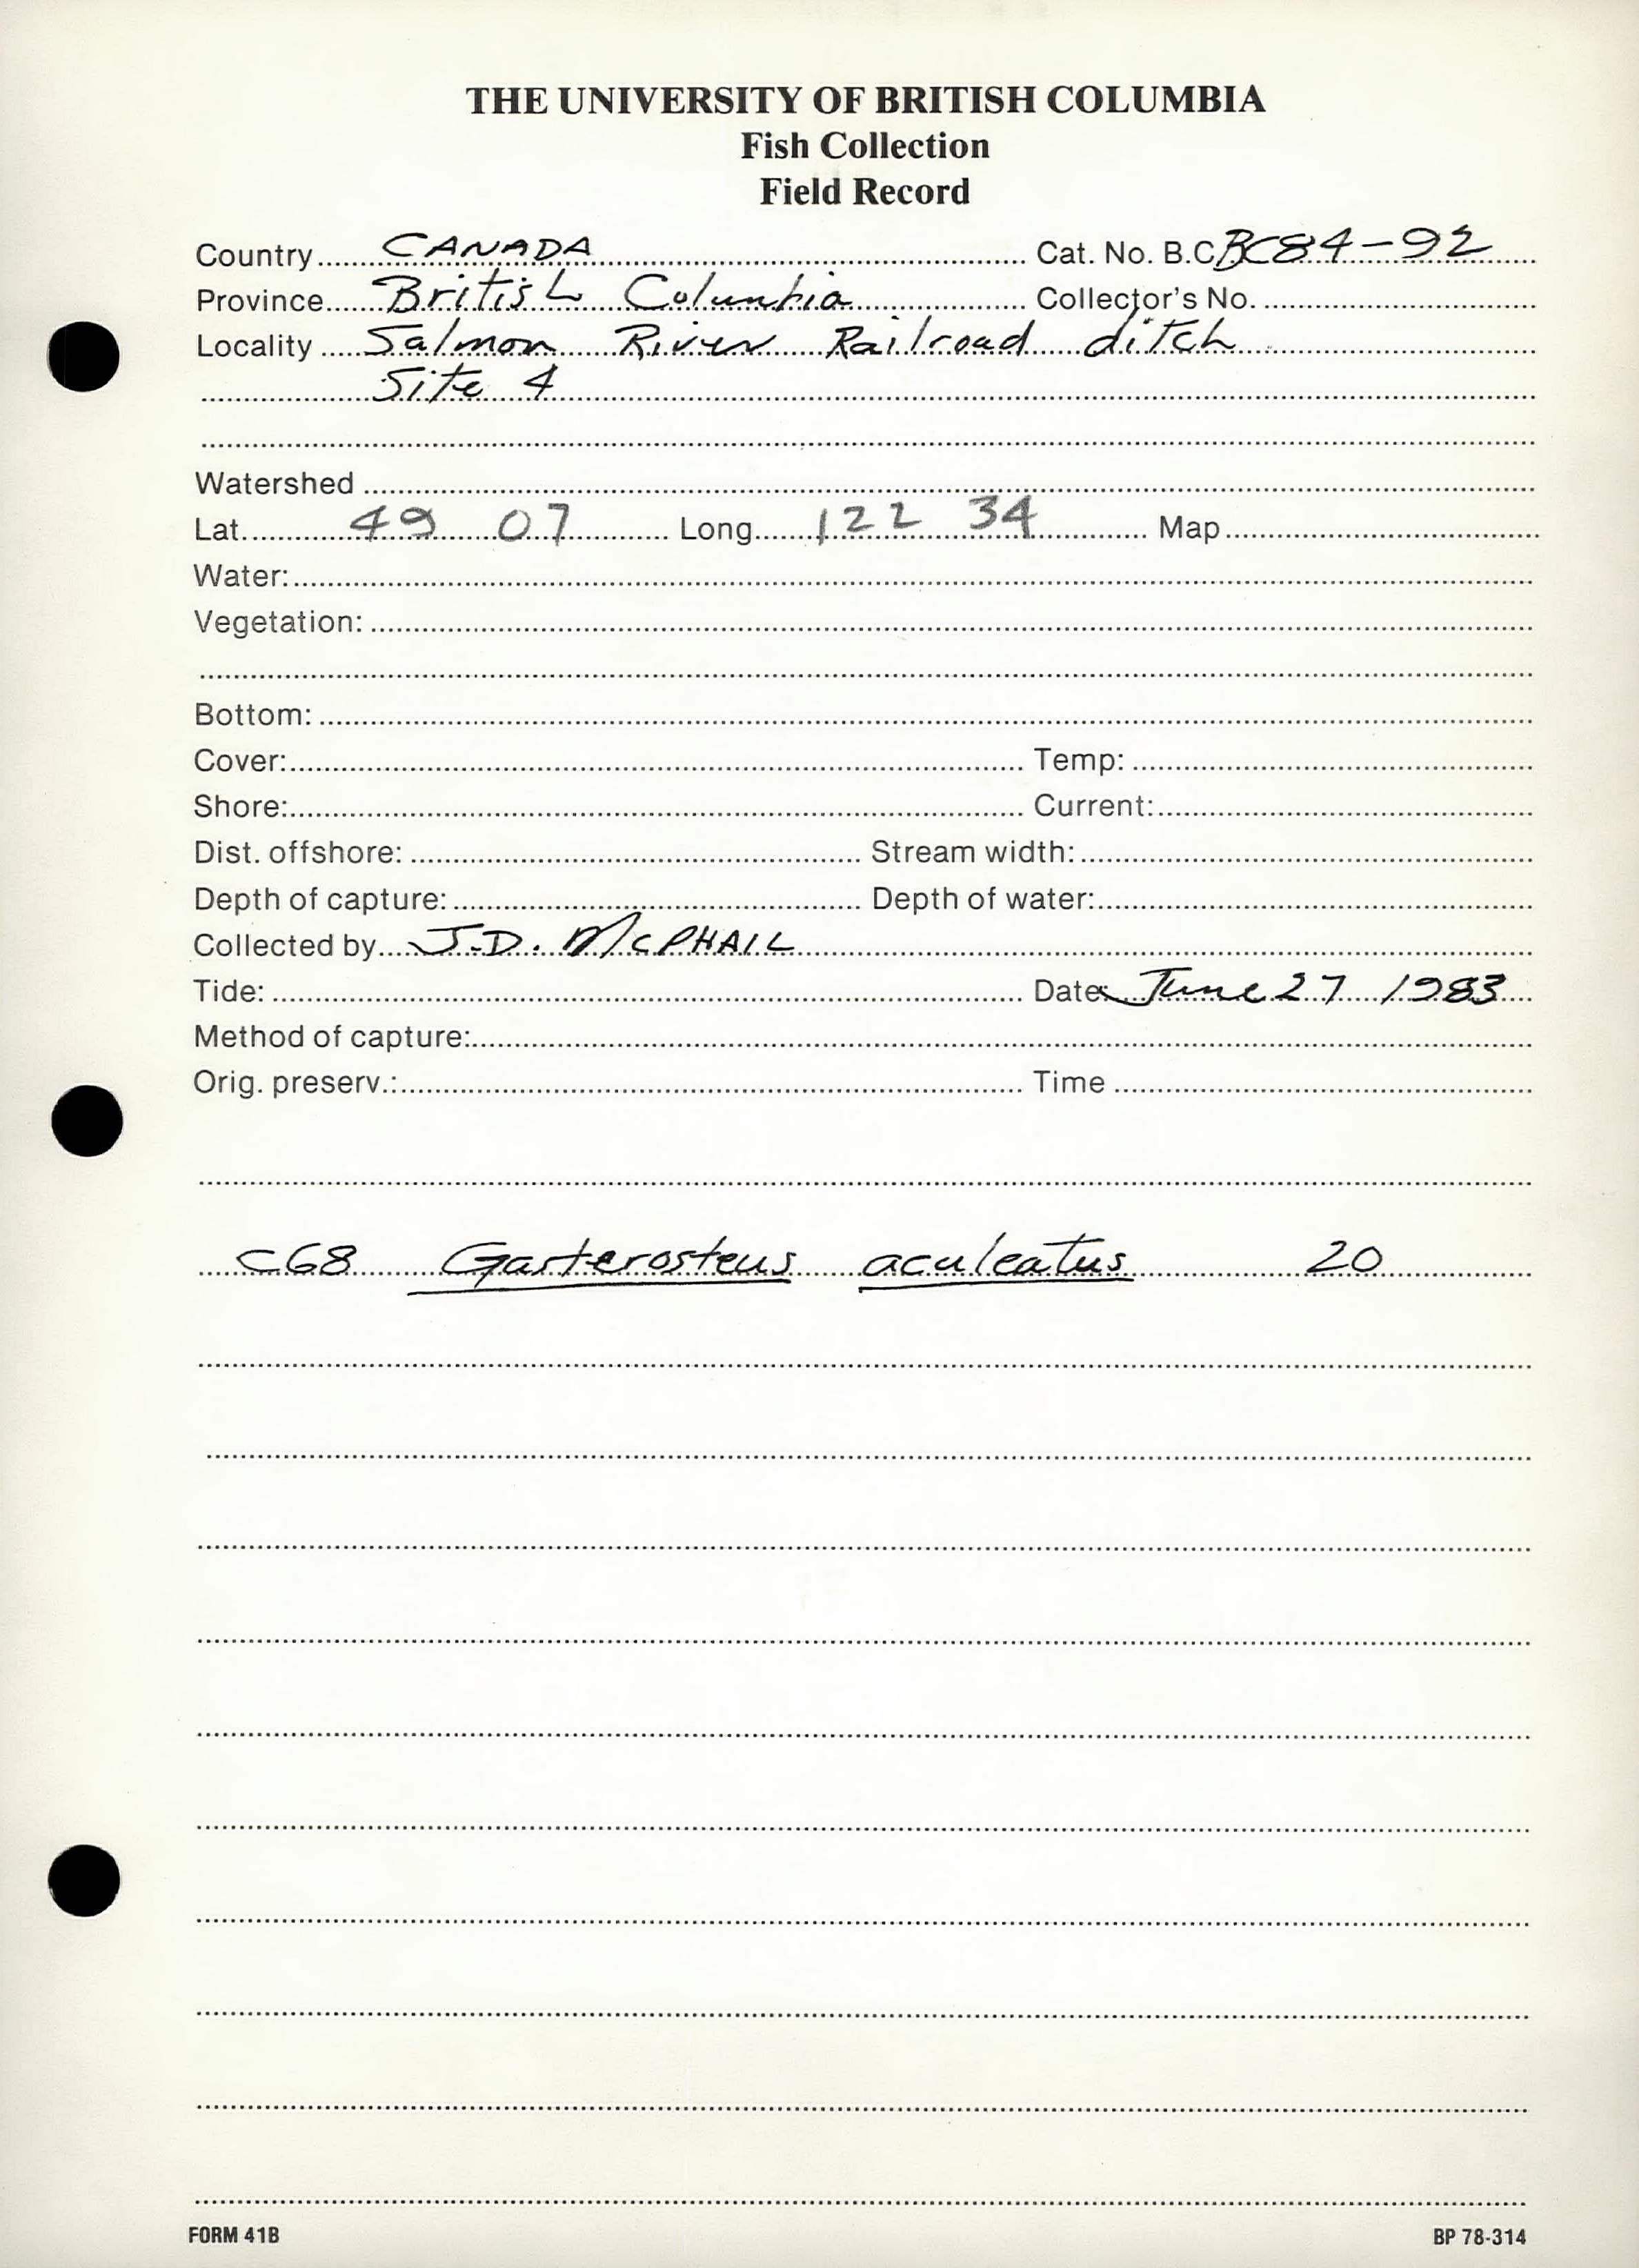 THE UNIVERSITY OF BRITISH COLUMBIA
Fish Collection
Field Record
Country CANADA Cat. No. B.C. BC84-92
Province British Columbia Collector's No.
Locality Salmon River Railroad ditch
Site 4
Watershed
Lat. 49 07 Long. 122 34 Map
Water:
Vegetation:
Bottom:
Cover: Temp:
Shore: Current:
Dist. offshore: Stream width:
Depth of capture: Depth of water:
Collected by J.D. McPHAIL
Tide: Date June 27 1983
Method of capture:
Orig. preserv.: Time
C68 Gasterosteus aculeatus 20
FORM 41B BP 78-314